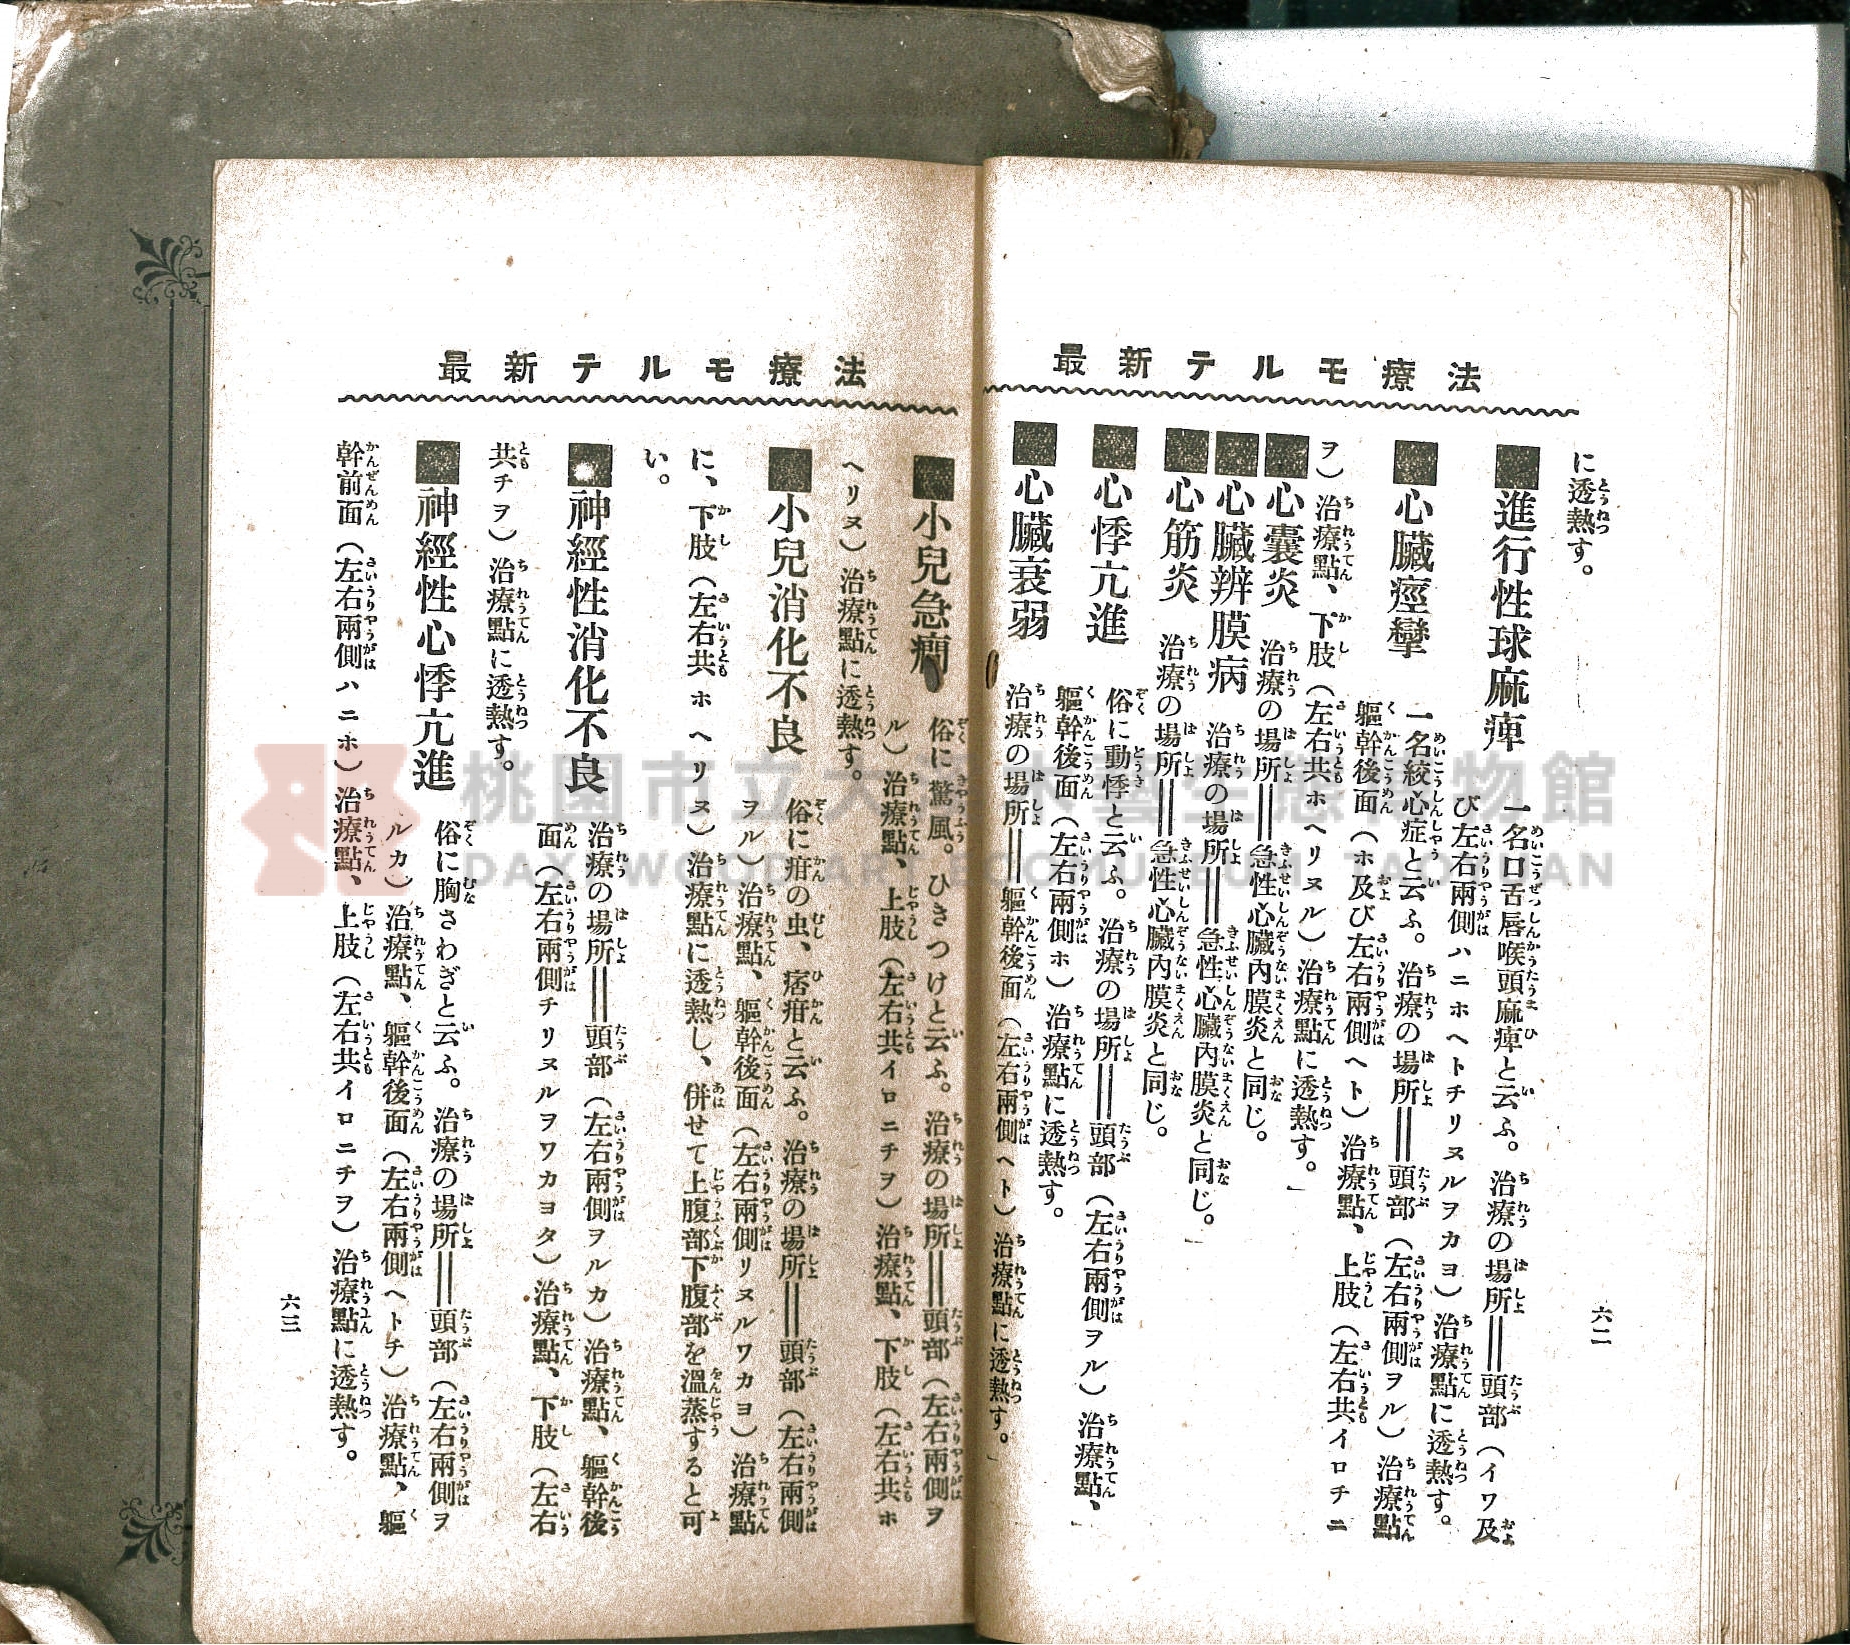 最新テルモ療法
に透熱す。
■進行性球麻痺 一名口舌唇喉頭麻痺と云ふ。治療の場所＝頭部（イワ及
び左右兩側ハニホヘトチリヌルヲカヨ）治療點に透熱す。
■心臟痙攣 一名絞心症と云ふ。治療の場所＝頭部（左右兩側ヲル）治療點
軀幹後面（ホ及び左右兩側ヘト）治療點、上肢（左右共イロチニ
ヲ）治療點、下肢（左右共ホヘリヌル）治療點に透熱す。
■心囊炎 治療の場所＝急性心臟內膜炎と同じ。
■心臟辨膜病 治療の場所＝急性心臟內膜炎と同じ。
■心筋炎 治療の場所＝急性心臟內膜炎と同じ。
■心悸亢進 俗に動悸と云ふ。治療の場所＝頭部（左右兩側ヲル）治療點、
軀幹後面（左右兩側ホ）治療點に透熱す。
■心臟衰弱 治療の場所＝軀幹後面（左右兩側ヘト）治療點に透熱す。
六二
最新テルモ療法
■小兒急癇 俗に驚風。ひきつけと云ふ。治療の場所＝頭部（左右兩側ヲ
ル）治療點、上肢（左右共イロニチヲ）治療點、下肢（左右共ホ
ヘリヌ）治療點に透熱す。
■小兒消化不良 俗に疳の虫、痞疳と云ふ。治療の場所＝頭部（左右兩側
ヲル）治療點、軀幹後面（左右兩側リヌルワカヨ）治療點
に、下肢（左右共ホヘリヌ）治療點に透熱し、併せて上腹部下腹部を溫蒸すると可
い。
■神經性消化不良 治療の場所＝頭部（左右兩側ヲルカ）治療點、軀幹後
面（左右兩側チリヌルヲワカヨタ）治療點、下肢（左右
共チヲ）治療點に透熱す。
■神經性心悸亢進 俗に胸さわぎと云ふ。治療の場所＝頭部（左右兩側ヲ
ルカ）治療點、軀幹後面（左右兩側ヘトチ）治療點、軀
幹前面（左右兩側ハニホ）治療點、上肢（左右共イロニチヲ）治療點に透熱す。
六三
桃園市立大溪木藝生態博物館
DAXI WOOD ART ECOMUSEUM, TAOYUAN